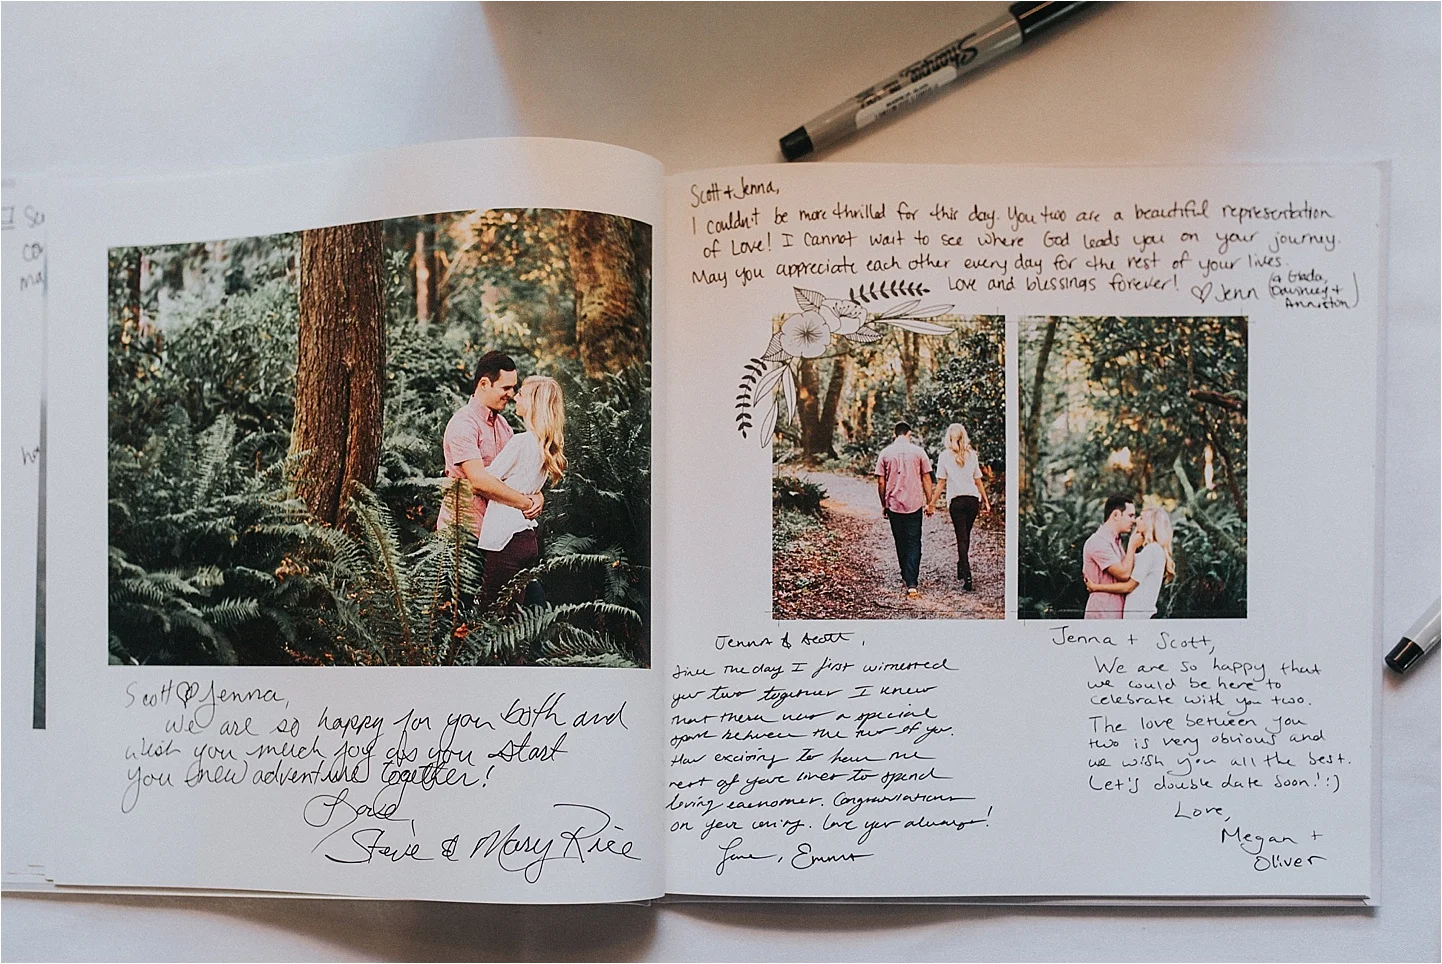 Scott ♡ Jenna,
We are so happy for you both and
wish you much joy as you start
you (new) adventure together!
Love,
Steve & Mary Rice
Sharpie
Scott + Jenna,
I couldn't be more thrilled for this day. You two are a beautiful representation
of Love! I cannot wait to see where God leads you on your journey.
May you appreciate each other every day for the rest of your lives.
Love and blessings forever! ♡ Jenn
Anniston)
Jenna & Scott,
Since the day I first witnessed
you two together I knew
that there was a special
spark between the two of you.
How exciting to have the
rest of your lives to spend
loving eachother. Congratulations
on your Love you always!
Love, Emma
Jenna + Scott,
We are so happy that
we could be here to
celebrate with you two.
The love between you
two is very obvious and
we wish you all the best.
Let's double date soon! :)
Love,
Megan +
Oliver